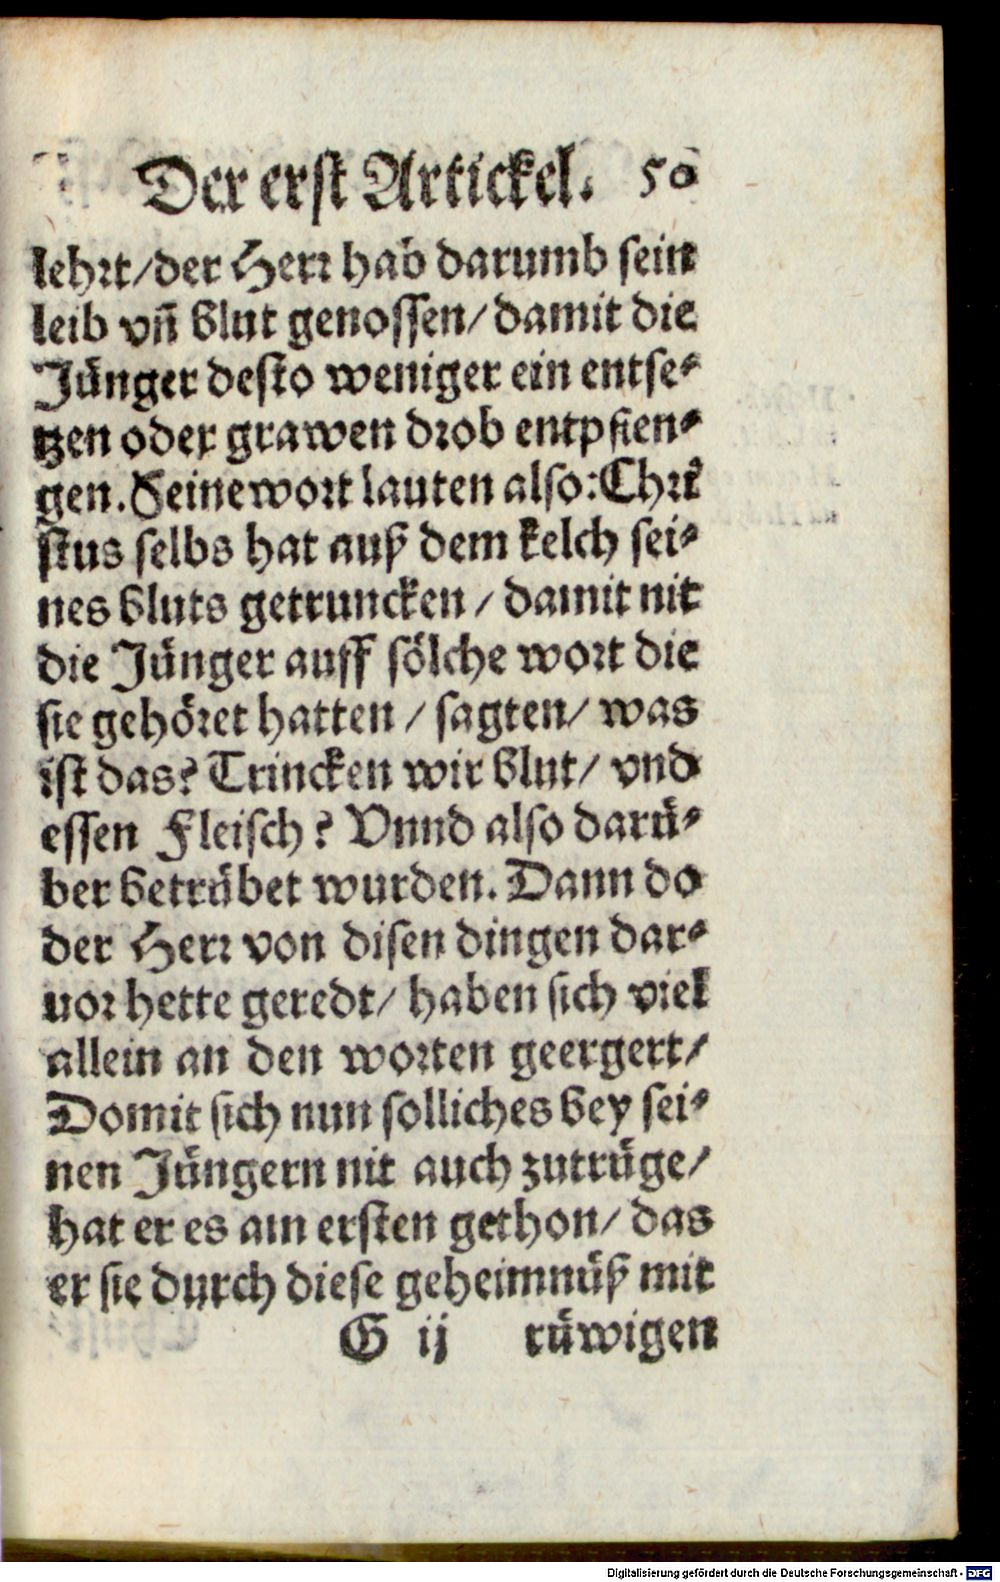 Der erst Artickel. 50
lehrt/der Herr hab darumb sein
leib vñ blut genossen/damit die
Jünger desto weniger ein entse-
tzen oder grawen drob entpfien-
gen. Seine wort lauten also: Chri
stus selbs hat auß dem kelch sei-
nes bluts getruncken / damit nit
die Jünger auff sölche wort die
sie gehöret hatten / sagten/ was
ist das? Trincken wir blut/ vnd
essen Fleisch? Vnnd also darü-
ber betrübet wurden. Dann do
der Herr von disen dingen dar-
uor hette geredt/ haben sich viel
allein an den worten geergert/
Domit sich nun solliches bey sei-
nen Jüngern nit auch zutrüge/
hat er es am ersten gethon/ das
er sie durch diese geheimnüß mit
G ij rüwigen
Digitalisierung gefördert durch die Deutsche Forschungsgemeinschaft - DFG